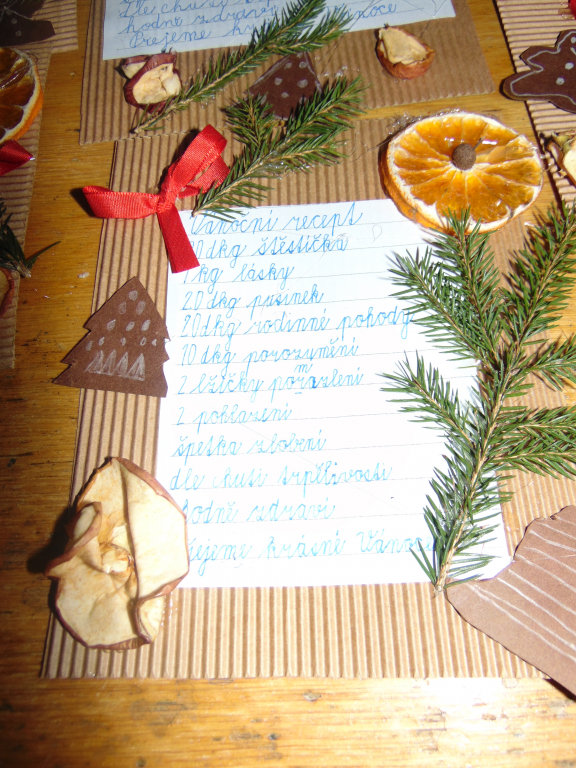 Dle chuti
hodně zdraví Vánoce
Přejeme
Vánoční recept
20 dkg štěstíčka
1 kg lásky
20 dkg pusinek
20 dkg rodinné pohody
10 dkg porozumění
2 lžičky pomazlení
2 pohlazení
špetka zlobení
dle chuti trpělivosti
hodně zdraví
Přejeme krásné Vánoce